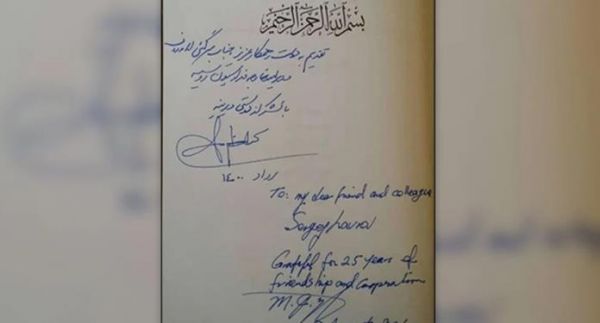 بسم الله الرحمن الرحیم
تقدیم به دوست و همکار عزیز جناب سرگئی لاوروف
وزیر امور خارجه فدراسیون روسیه
با تشکر از دوستی دیرینه
مرداد ۱۴۰۰
To: my dear friend and colleague
Sergey Lavrov
Grateful for 25 years of
friendship and cooperation
M. J. Z